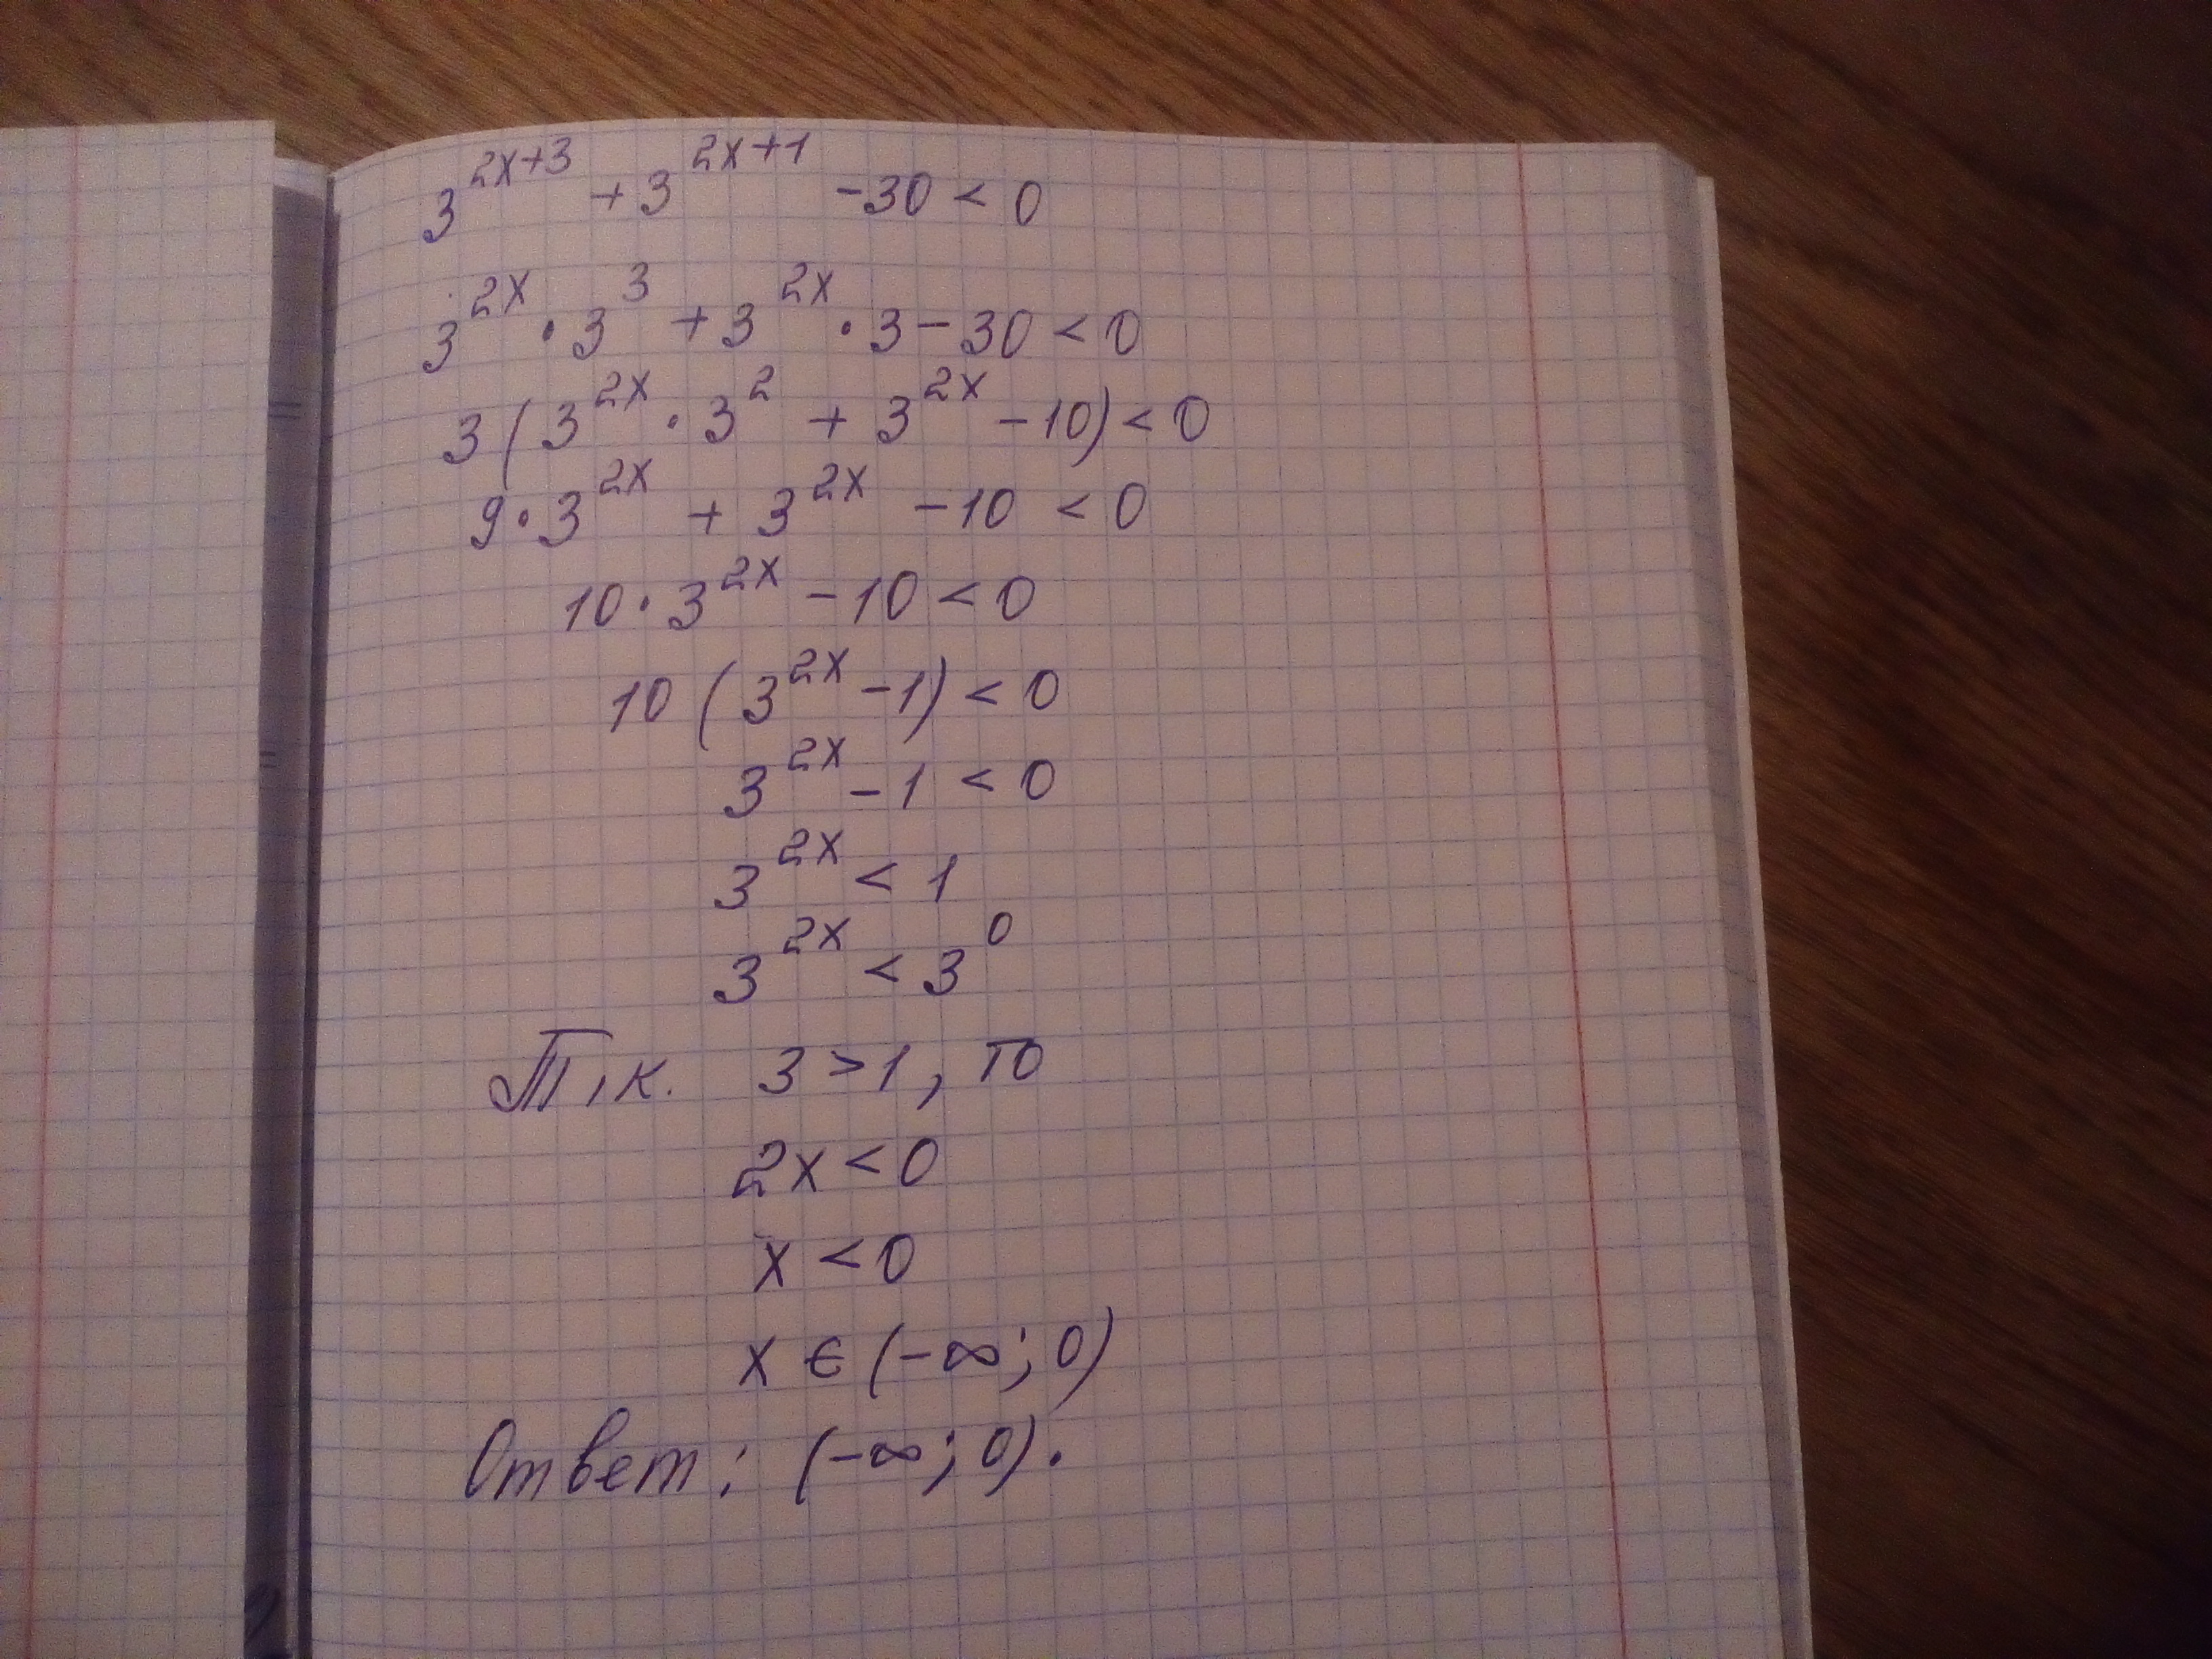 3^{2x+3} + 3^{2x+1} - 30 < 0
3^{2x} · 3^3 + 3^{2x} · 3 - 30 < 0
3(3^{2x} · 3^2 + 3^{2x} - 10) < 0
9 · 3^{2x} + 3^{2x} - 10 < 0
10 · 3^{2x} - 10 < 0
10 (3^{2x} - 1) < 0
3^{2x} - 1 < 0
3^{2x} < 1
3^{2x} < 3^0
Т.к. 3 > 1, то
2x < 0
x < 0
x ∈ (-∞; 0)
Ответ: (-∞; 0).